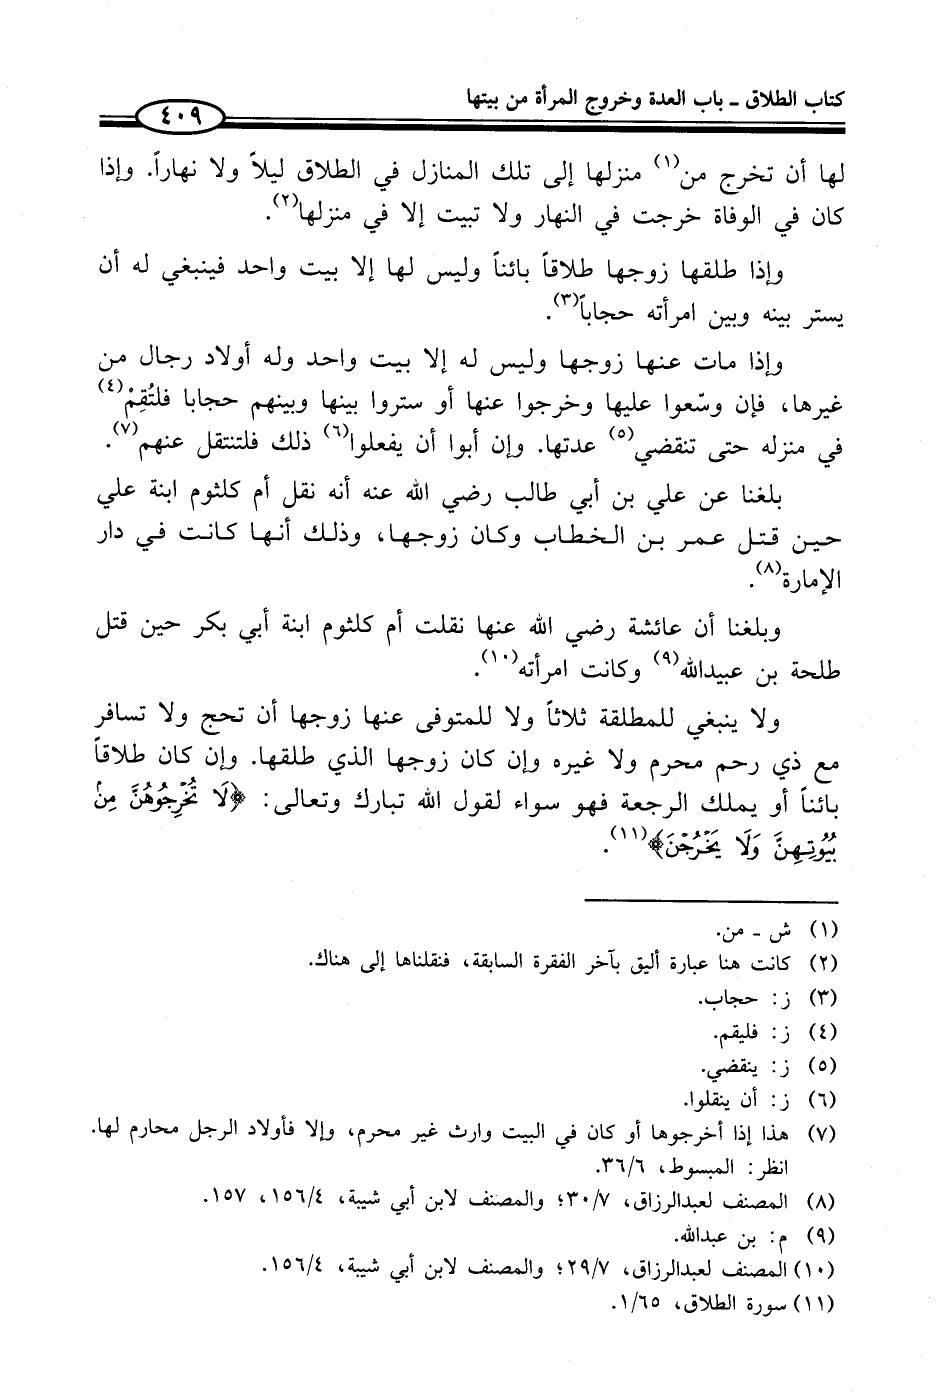 كتاب الطلاق ـ باب العدة وخروج المرأة من بيتها
٤٠٩
لها أن تخرج من(١) منزلها إلى تلك المنازل في الطلاق ليلاً ولا نهاراً. وإذا
كان في الوفاة خرجت في النهار ولا تبيت إلا في منزلها(٢).
وإذا طلقها زوجها طلاقاً بائناً وليس لها إلا بيت واحد فينبغي له أن
يستر بينه وبين امرأته حجاباً(٣).
وإذا مات عنها زوجها وليس له إلا بيت واحد وله أولاد رجال من
غيرها، فإن وسّعوا عليها وخرجوا عنها أو ستروا بينها وبينهم حجابا فلتُقِمْ(٤)
في منزله حتى تنقضي(٥) عدتها. وإن أبوا أن يفعلوا(٦) ذلك فلتنتقل عنهم(٧).
بلغنا عن علي بن أبي طالب رضي الله عنه أنه نقل أم كلثوم ابنة علي
حين قتل عمر بن الخطاب وكان زوجها، وذلك أنها كانت في دار
الإمارة(٨).
وبلغنا أن عائشة رضي الله عنها نقلت أم كلثوم ابنة أبي بكر حين قتل
طلحة بن عبيدالله(٩) وكانت امرأته(١٠).
ولا ينبغي للمطلقة ثلاثاً ولا للمتوفى عنها زوجها أن تحج ولا تسافر
مع ذي رحم محرم ولا غيره وإن كان زوجها الذي طلقها. وإن كان طلاقاً
بائناً أو يملك الرجعة فهو سواء لقول الله تبارك وتعالى: ﴿لَا تُخْرِجُوهُنَّ مِنْ
بُيُوتِهِنَّ وَلَا يَخْرُجْنَ﴾(١١).
(١) ش ـ من.
(٢) كانت هنا عبارة أليق بآخر الفقرة السابقة، فنقلناها إلى هناك.
(٣) ز: حجاب.
(٤) ز: فليقم.
(٥) ز: ينقضي.
(٦) ز: أن ينقلوا.
(٧) هذا إذا أخرجوها أو كان في البيت وارث غير محرم، وإلا فأولاد الرجل محارم لها.
انظر: المبسوط، ٣٦/٦.
(٨) المصنف لعبدالرزاق، ٣٠/٧؛ والمصنف لابن أبي شيبة، ١٥٦/٤، ١٥٧.
(٩) م: بن عبدالله.
(١٠) المصنف لعبدالرزاق، ٢٩/٧؛ والمصنف لابن أبي شيبة، ١٥٦/٤.
(١١) سورة الطلاق، ١/٦٥.